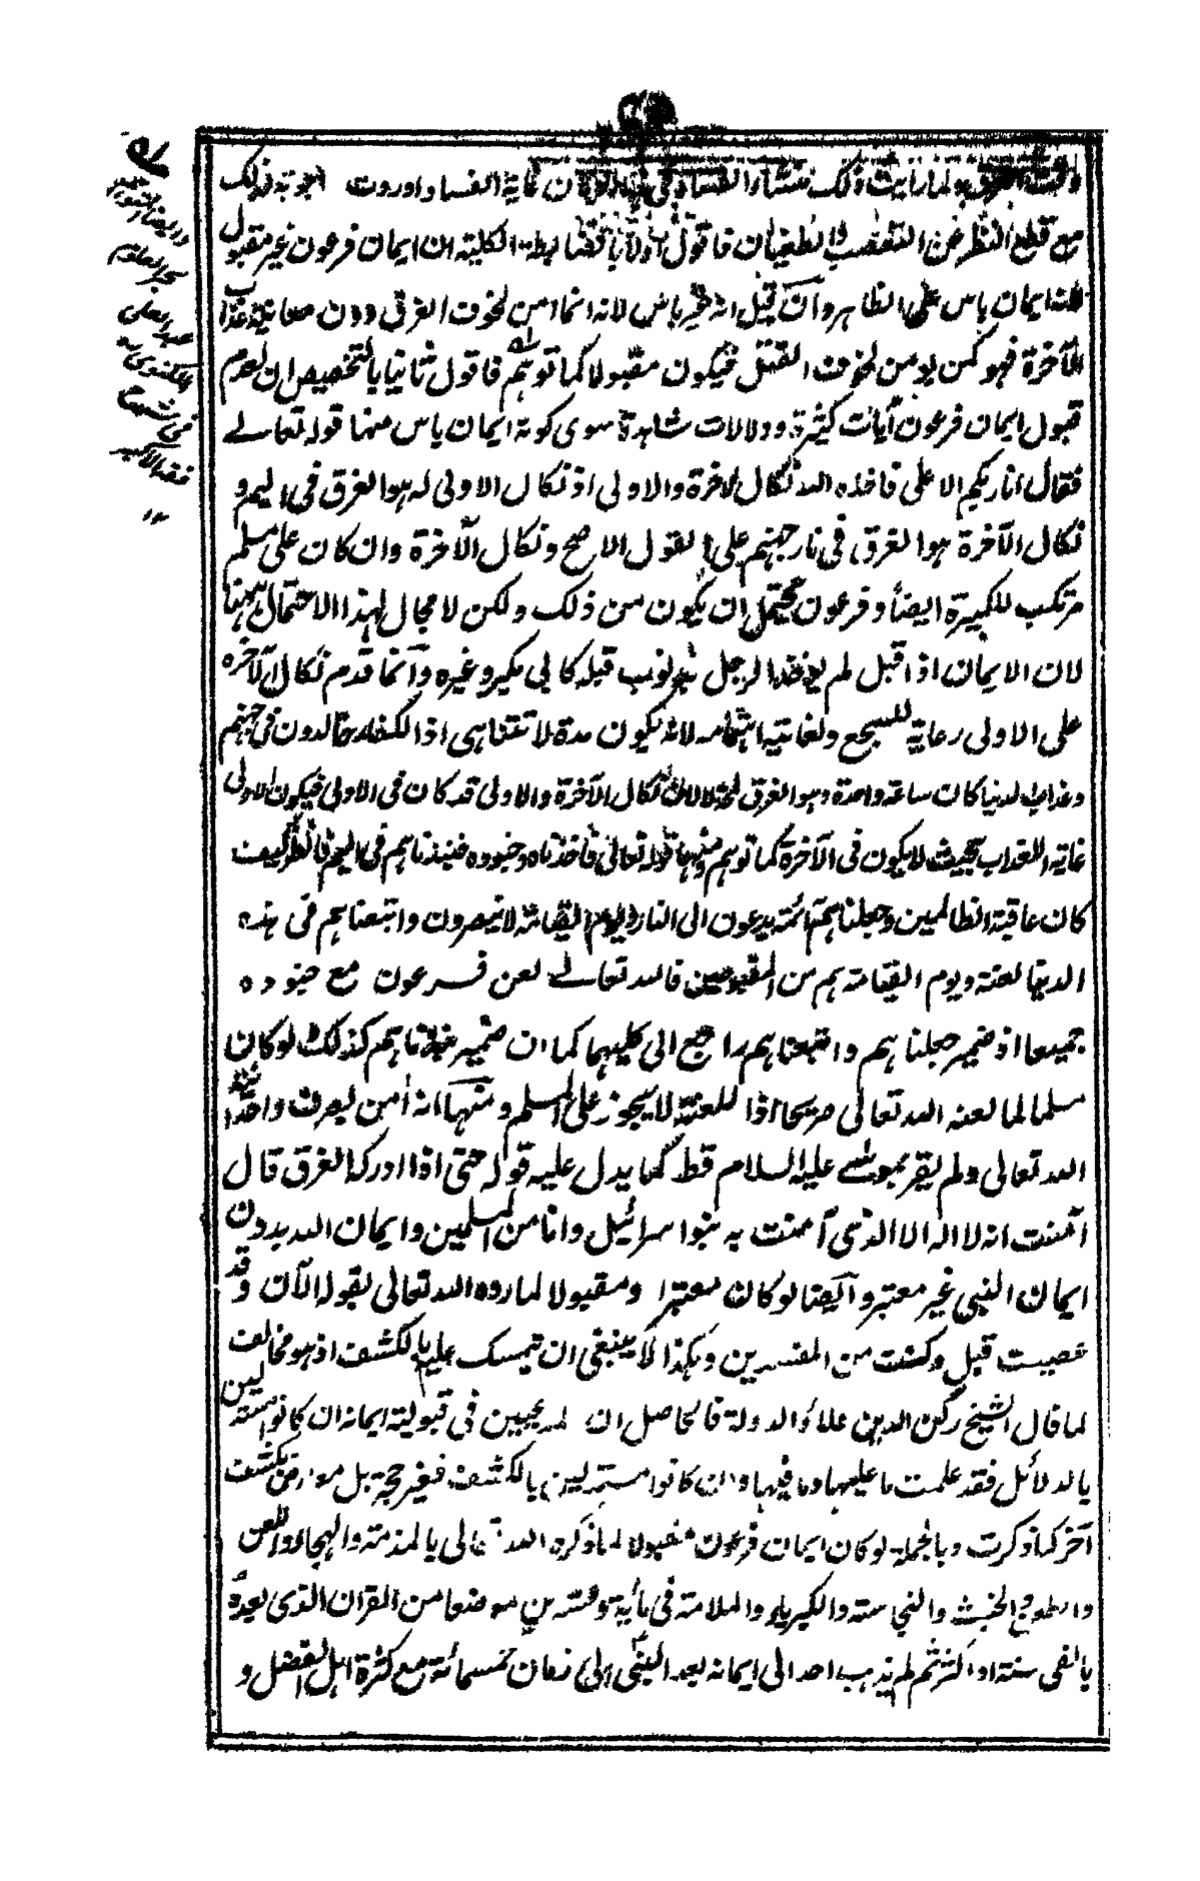 ولما رايت ذلك منشاء الفساد في غاية الفساد اوردت اجوبة ذلك
مع قطع النظر عن التعصب والطغيان فاقول اولا بالضابطة الكلية ان ايمان فرعون غير مقبول
لانه ايمان باس على الظاهر وان قيل انه غير باس لانه انما امن لخوف الغرق دون معاينة عذاب
الآخرة فهو كمن يومن لخوف القتل فيكون مقبولا كما توهم فاقول ثانيا بالتخصيص ان لعدم
قبول ايمان فرعون آيات كثيرة ودلالات شاهدة سوى كونه ايمان باس منها قوله تعالے
فقال انا ربكم الاعلى فاخذه الله نكال الآخرة والاولى اذ نكال الاولى له هو الغرق في اليم و
نكال الآخرة هو الغرق في نار جهنم على القول الاصح ونكال الآخرة وان كان على مسلم
مرتكب للكبيرة ايضا وفرعون يحتمل ان يكون من ذلك ولكن لا مجال لهذا الاحتمال ههنا
لان الايمان اذا قبل لم يوخذ الرجل بذنوب قبله كابي بكر وغيره وانما قدم نكال الآخرة
على الاولى رعاية للسجع ولغاية اهتمامه لانه يكون مدة لا تتناهى اذ الكفار خالدون في جهنم
وعذاب الدنيا كان ساعة واحدة وهو الغرق لا لان نكال الآخرة والاولى قد كان في الاولى فيكون الاولى
غاية للعذاب بحيث لا يكون في الآخرة كما توهم ومنها قوله تعالى فاخذناه وجنوده فنبذناهم في اليم فانظر كيف
كان عاقبة الظالمين وجعلناهم ائمة يدعون الى النار ويوم القيامة لا ينصرون واتبعناهم في هذه
الدنيا لعنة ويوم القيامة هم من المقبوحين فالله تعالے لعن فرعون مع جنوده
جميعا اذ ضمير جعلناهم واتبعناهم راجع الى كليهما كما ان ضمير نبذناهم كذلك لو كان
مسلما لما لعنه الله تعالى صريحا اذ اللعنة لا يجوز على المسلم ومنها انه آمن ليعرف واحدا
الله تعالى ولم يقر بموسے عليه السلام قط كما يدل عليه قوله حتى اذا ادركه الغرق قال
آمنت انه لا اله الا الذي آمنت به بنوا اسرائيل وانا من المسلمين وايمان الله بدون
ايمان النبي غير معتبر وايضا لو كان معتبرا ومقبولا لما رده الله تعالى بقوله الآن وقد
عصيت قبل وكنت من المفسدين وهكذا لا ينبغي ان يتمسك عليه بالكشف اذ هو مخالف
لما قال الشيخ ركن الدين علاء الدولة فالحاصل ان المدعيين في قبولية ايمانه ان كانوا مستدلين
بالدلائل فقد علمت ما عليها وما فيها وان كانوا مستدلين بالكشف فغير حجة بل معارض بكشف
آخر كما ذكرت وبالجملة لو كان ايمان فرعون مقبولا لما ذكره الله تعالى بالمذمة والهجاء واللعن
والخبث والنجاسة والكبرياء والملامة في مأية موضعا من القران الذي بعده
بالفى سنة او اكثر ثم لم يذهب احد الى ايمانه بعد النبي الى زمان خمسمائة مع كثرة اهل الفضل و
بحر العلوم
عبد العلى
اللكنوى
في شرح
فقه الاكبر